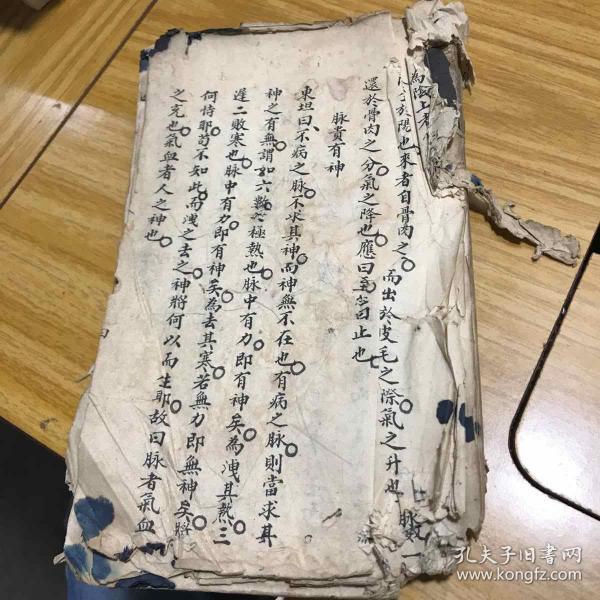 為陰上者
生於陽也來者自骨肉之 而出於皮毛之際氣之升也
還於骨肉之分氣之降也應曰至 曰止也
脉貴有神
東坦曰不病之脉不求其神而神無不在也有病之脉則當求其
神之有無謂如六數 極熱也脉中有力即有神矣為洩其熱三
遲二敗寒也脉中有力即有神矣為去其寒若無力即無神矣將
何恃耶苟不知此而洩之去之神將何以而主耶故曰脉者氣血
之充也氣血者人之神也
脉数一
孔夫子旧書网
www.kongfz.com